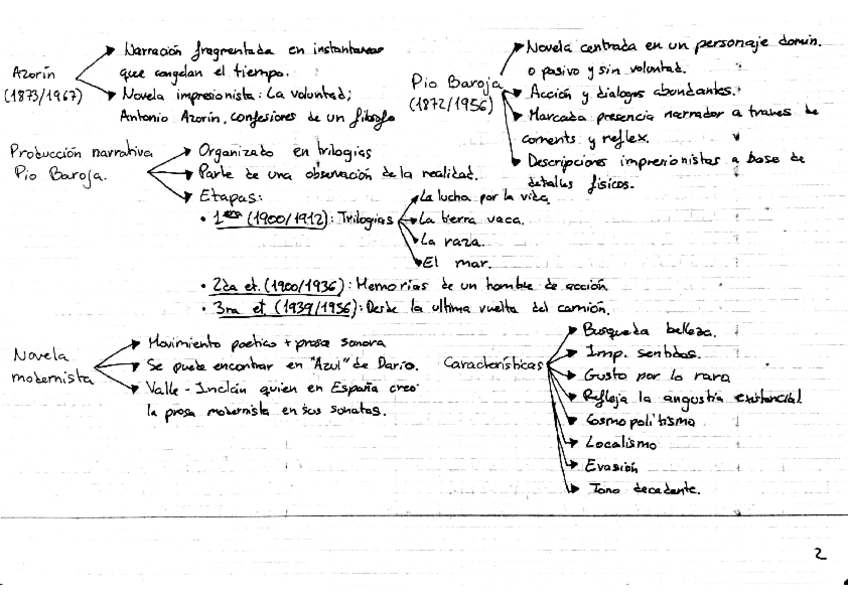 Azorín
(1873/1967)
Narración fragmentada en instantaneas
que congelan el tiempo.
Novela impresionista: La voluntad;
Antonio Azorín, confesiones de un filosofo
Pio Baroja
(1872/1956)
Novela centrada en un personaje domin.
o pasivo y sin voluntad.
Acción y dialogos abundantes.
Marcada presencia narrador a traves de
coments y reflex.
Descripciones impresionistas a base de
detalles físicos.
Producción narrativa
Pío Baroja.
Organizado en trilogías
Parte de una observación de la realidad.
Etapas:
• 1era (1900/1912): Trilogias
La lucha por la vida
La tierra vaca.
La raza.
El mar.
• 2da et. (1900/1936): Memorias de un hombre de acción
• 3ra et. (1939/1956): Desde la ultima vuelta del camión.
Novela
modernista
Movimiento poetico + prosa sonora
Se puede encontrar en "Azul" de Dario.
Valle-Inclán quien en España creó
la prosa modernista en sus sonatas.
Características
Busqueda belleza.
Imp. sentidos.
Gusto por lo raro
Refleja la angustia existencial
Cosmopolitismo
Localismo
Evasión
Tono decadente.
2